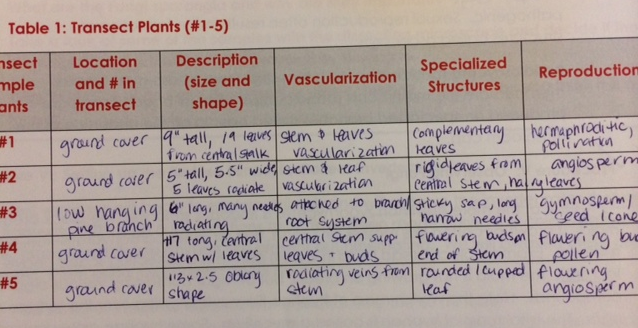 Table 1: Transect Plants (#1-5)
nsect mple ants
Location and # in transect
Description (size and shape)
Vascularization
Specialized Structures
Reproduction
#1
ground cover
9" tall, 19 leaves
from central stalk
stem & leaves
vascularization
complementary
leaves
hermaphroditic,
pollination
#2
ground cover
5" tall, 5.5" wide,
5 leaves radiate
stem & leaf
vascularization
rigid leaves from
central stem, hairy leaves
angiosperm
#3
low hanging
pine branch
6" long, many needles
radiating
attached to branch/
root system
sticky sap, long
narrow needles
gymnosperm/
seed /cone
#4
ground cover
long, central
stem w/ leaves
central stem supp
leaves + buds
flowering buds on
end of stem
flowering bud
pollen
#5
ground cover
3 x 2.5 oblong
shape
radiating veins from
stem
rounded / cupped
leaf
flowering
angiosperm